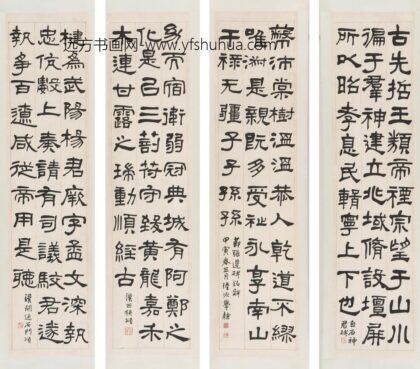 远方书画网：www.yfshuhua.com
古先哲王類帝禋宗望于山川
徧于羣神建立兆域脩設壇屏
所以昭孝息民輯寧上下也
白石神
君碑
蔽沛棠樹溫溫恭人乾道不繆
唯淑是親既多受祉永享南山
干祿无疆子子孫孫
節張遷碑銘辭
甲寅春三月
幼而宿衛弱冠典城有阿鄭之
化是以三剖符守致黃龍嘉禾
木連甘露之瑞動順經古
漢西狹頌
楗為武陽楊君厥字孟文深執
忠伉數上奏請有司議駮君遂
執爭百遼咸從帝用是聽
石門頌